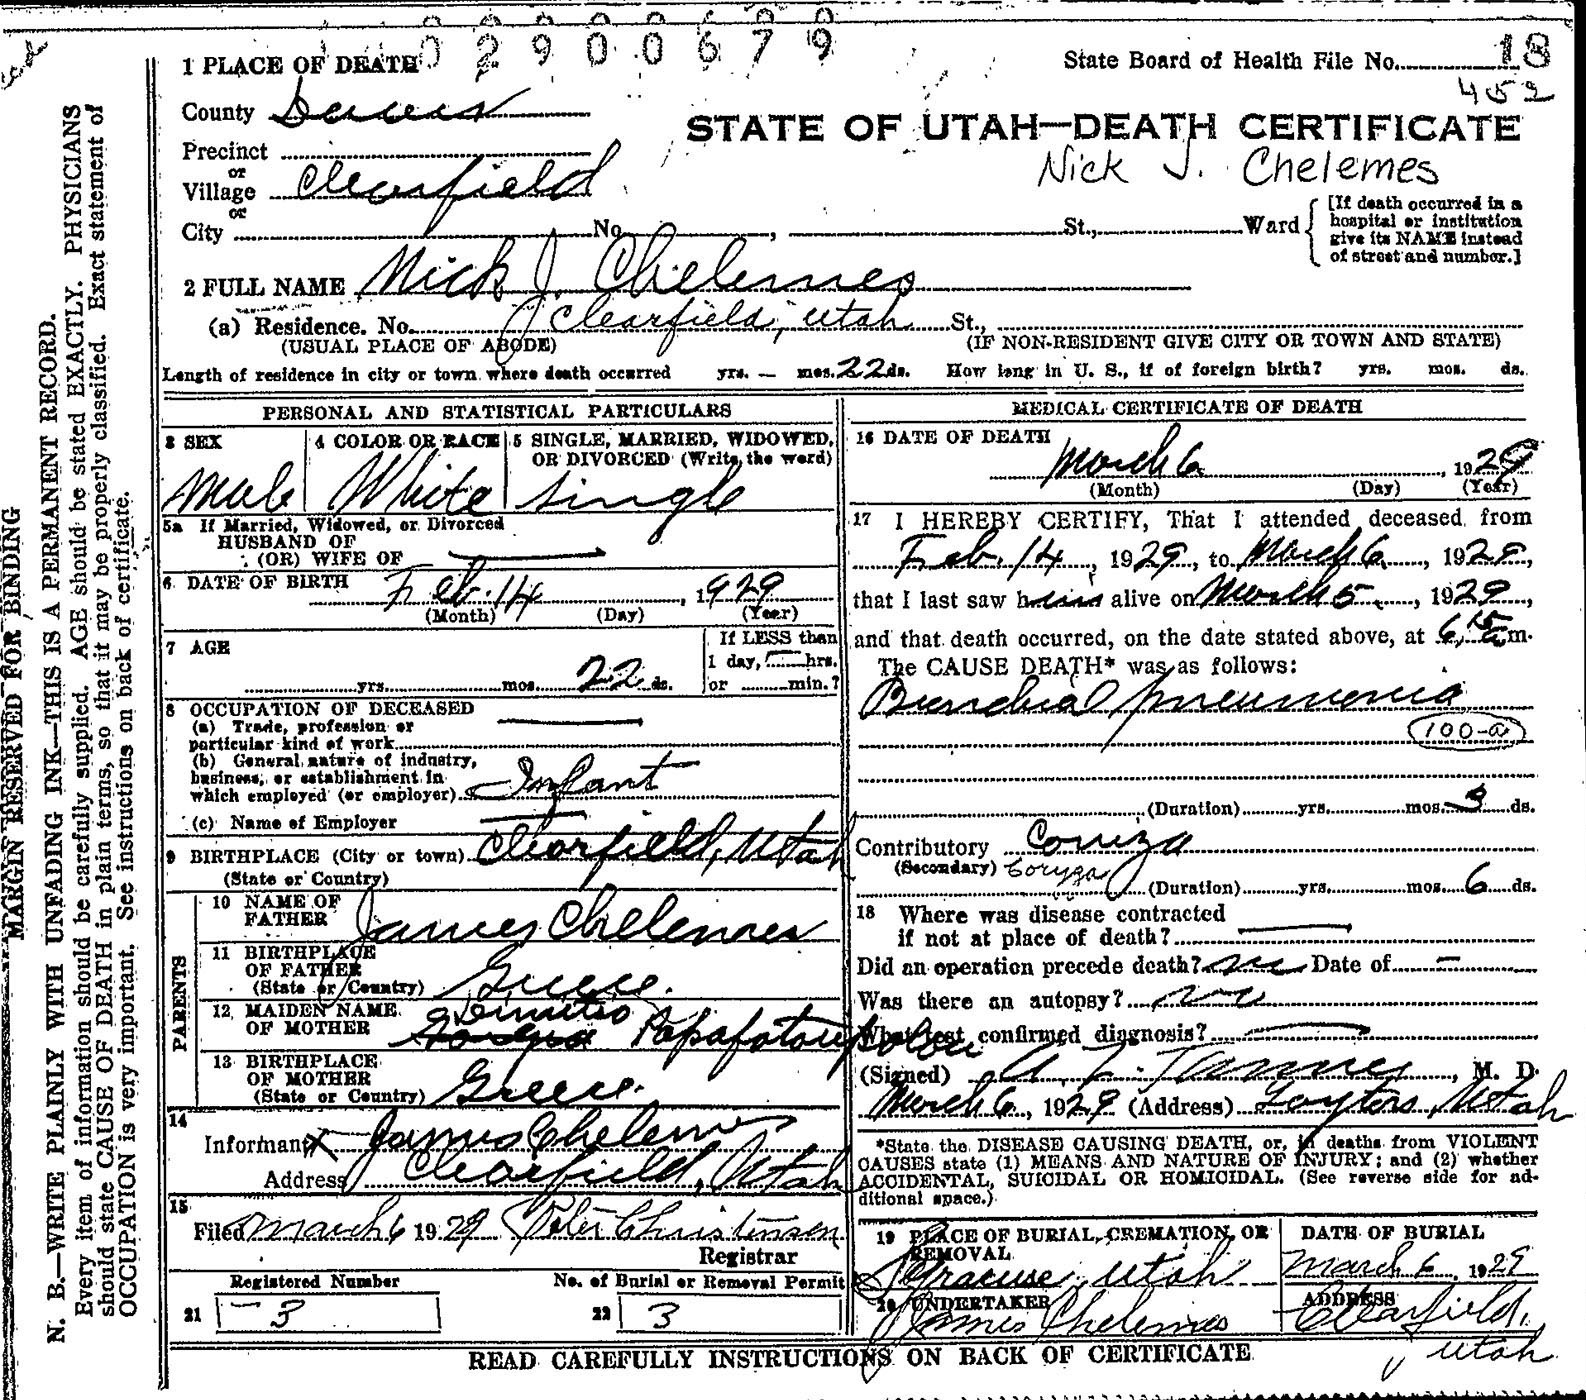 02900679
1 PLACE OF DEATH
State Board of Health File No. 18
452
County Davis
STATE OF UTAH—DEATH CERTIFICATE
Precinct
Nick J. Chelemes
or
Village Clearfield
or
City No. , St., Ward
[If death occurred in a
hospital or institution
give its NAME instead
of street and number.]
2 FULL NAME Nick J. Chelemes
(a) Residence. No. Clearfield, Utah St.,
(USUAL PLACE OF ABODE) (IF NON-RESIDENT GIVE CITY OR TOWN AND STATE)
Length of residence in city or town where death occurred yrs. — mos. 22 ds. How long in U. S., if of foreign birth? yrs. mos. ds.
PERSONAL AND STATISTICAL PARTICULARS
3 SEX 4 COLOR OR RACE 5 SINGLE, MARRIED, WIDOWED,
OR DIVORCED (Write the word)
Male White Single
5a If Married, Widowed, or Divorced
HUSBAND OF
(OR) WIFE OF
6 DATE OF BIRTH Feb. 14, 1929
(Month) (Day) (Year)
7 AGE If LESS than
1 day, — hrs.
yrs. mos. 22 ds. or min.?
8 OCCUPATION OF DECEASED
(a) Trade, profession or
particular kind of work
(b) General nature of industry,
business, or establishment in
which employed (or employer) Infant
(c) Name of Employer
9 BIRTHPLACE (City or town) Clearfield, Utah
(State or Country)
PARENTS
10 NAME OF
FATHER James Chelemes
11 BIRTHPLACE
OF FATHER
(State or Country) Greece.
12 MAIDEN NAME Dimitso
OF MOTHER Papafotoupolou
13 BIRTHPLACE
OF MOTHER
(State or Country) Greece.
14
Informant X James Chelemes
Address Clearfield, Utah
15
Filed March 6 1929 Peter Christensen
Registrar
Registered Number No. of Burial or Removal Permit
21 3 22 3
MEDICAL CERTIFICATE OF DEATH
16 DATE OF DEATH
March 6, 1929
(Month) (Day) (Year)
17 I HEREBY CERTIFY, That I attended deceased from
Feb. 14, 1929, to March 6, 1929,
that I last saw him alive on March 5, 1929,
and that death occurred, on the date stated above, at 6,15 a m.
The CAUSE DEATH* was as follows:
Bronchial pneumonia
100-a
(Duration) yrs. mos. 3 ds.
Contributory Coryza
(Secondary) Coryza
(Duration) yrs. mos. 6 ds.
18 Where was disease contracted
if not at place of death?
Did an operation precede death? no Date of —
Was there an autopsy? no
What test confirmed diagnosis?
(Signed) A. Z. Tanner, M. D.
March 6, 1929 (Address) Layton, Utah
*State the DISEASE CAUSING DEATH, or, in deaths from VIOLENT
CAUSES state (1) MEANS AND NATURE OF INJURY; and (2) whether
ACCIDENTAL, SUICIDAL OR HOMICIDAL. (See reverse side for ad-
ditional space.)
19 PLACE OF BURIAL, CREMATION, OR
REMOVAL
Syracuse, Utah
DATE OF BURIAL
March 6, 1929
20 UNDERTAKER
James Chelemes
ADDRESS
Clearfield,
Utah
READ CAREFULLY INSTRUCTIONS ON BACK OF CERTIFICATE
MARGIN RESERVED FOR BINDING
N. B.—WRITE PLAINLY WITH UNFADING INK—THIS IS A PERMANENT RECORD.
Every item of information should be carefully supplied. AGE should be stated EXACTLY. PHYSICIANS
should state CAUSE OF DEATH in plain terms, so that it may be properly classified. Exact statement of
OCCUPATION is very important. See instructions on back of certificate.